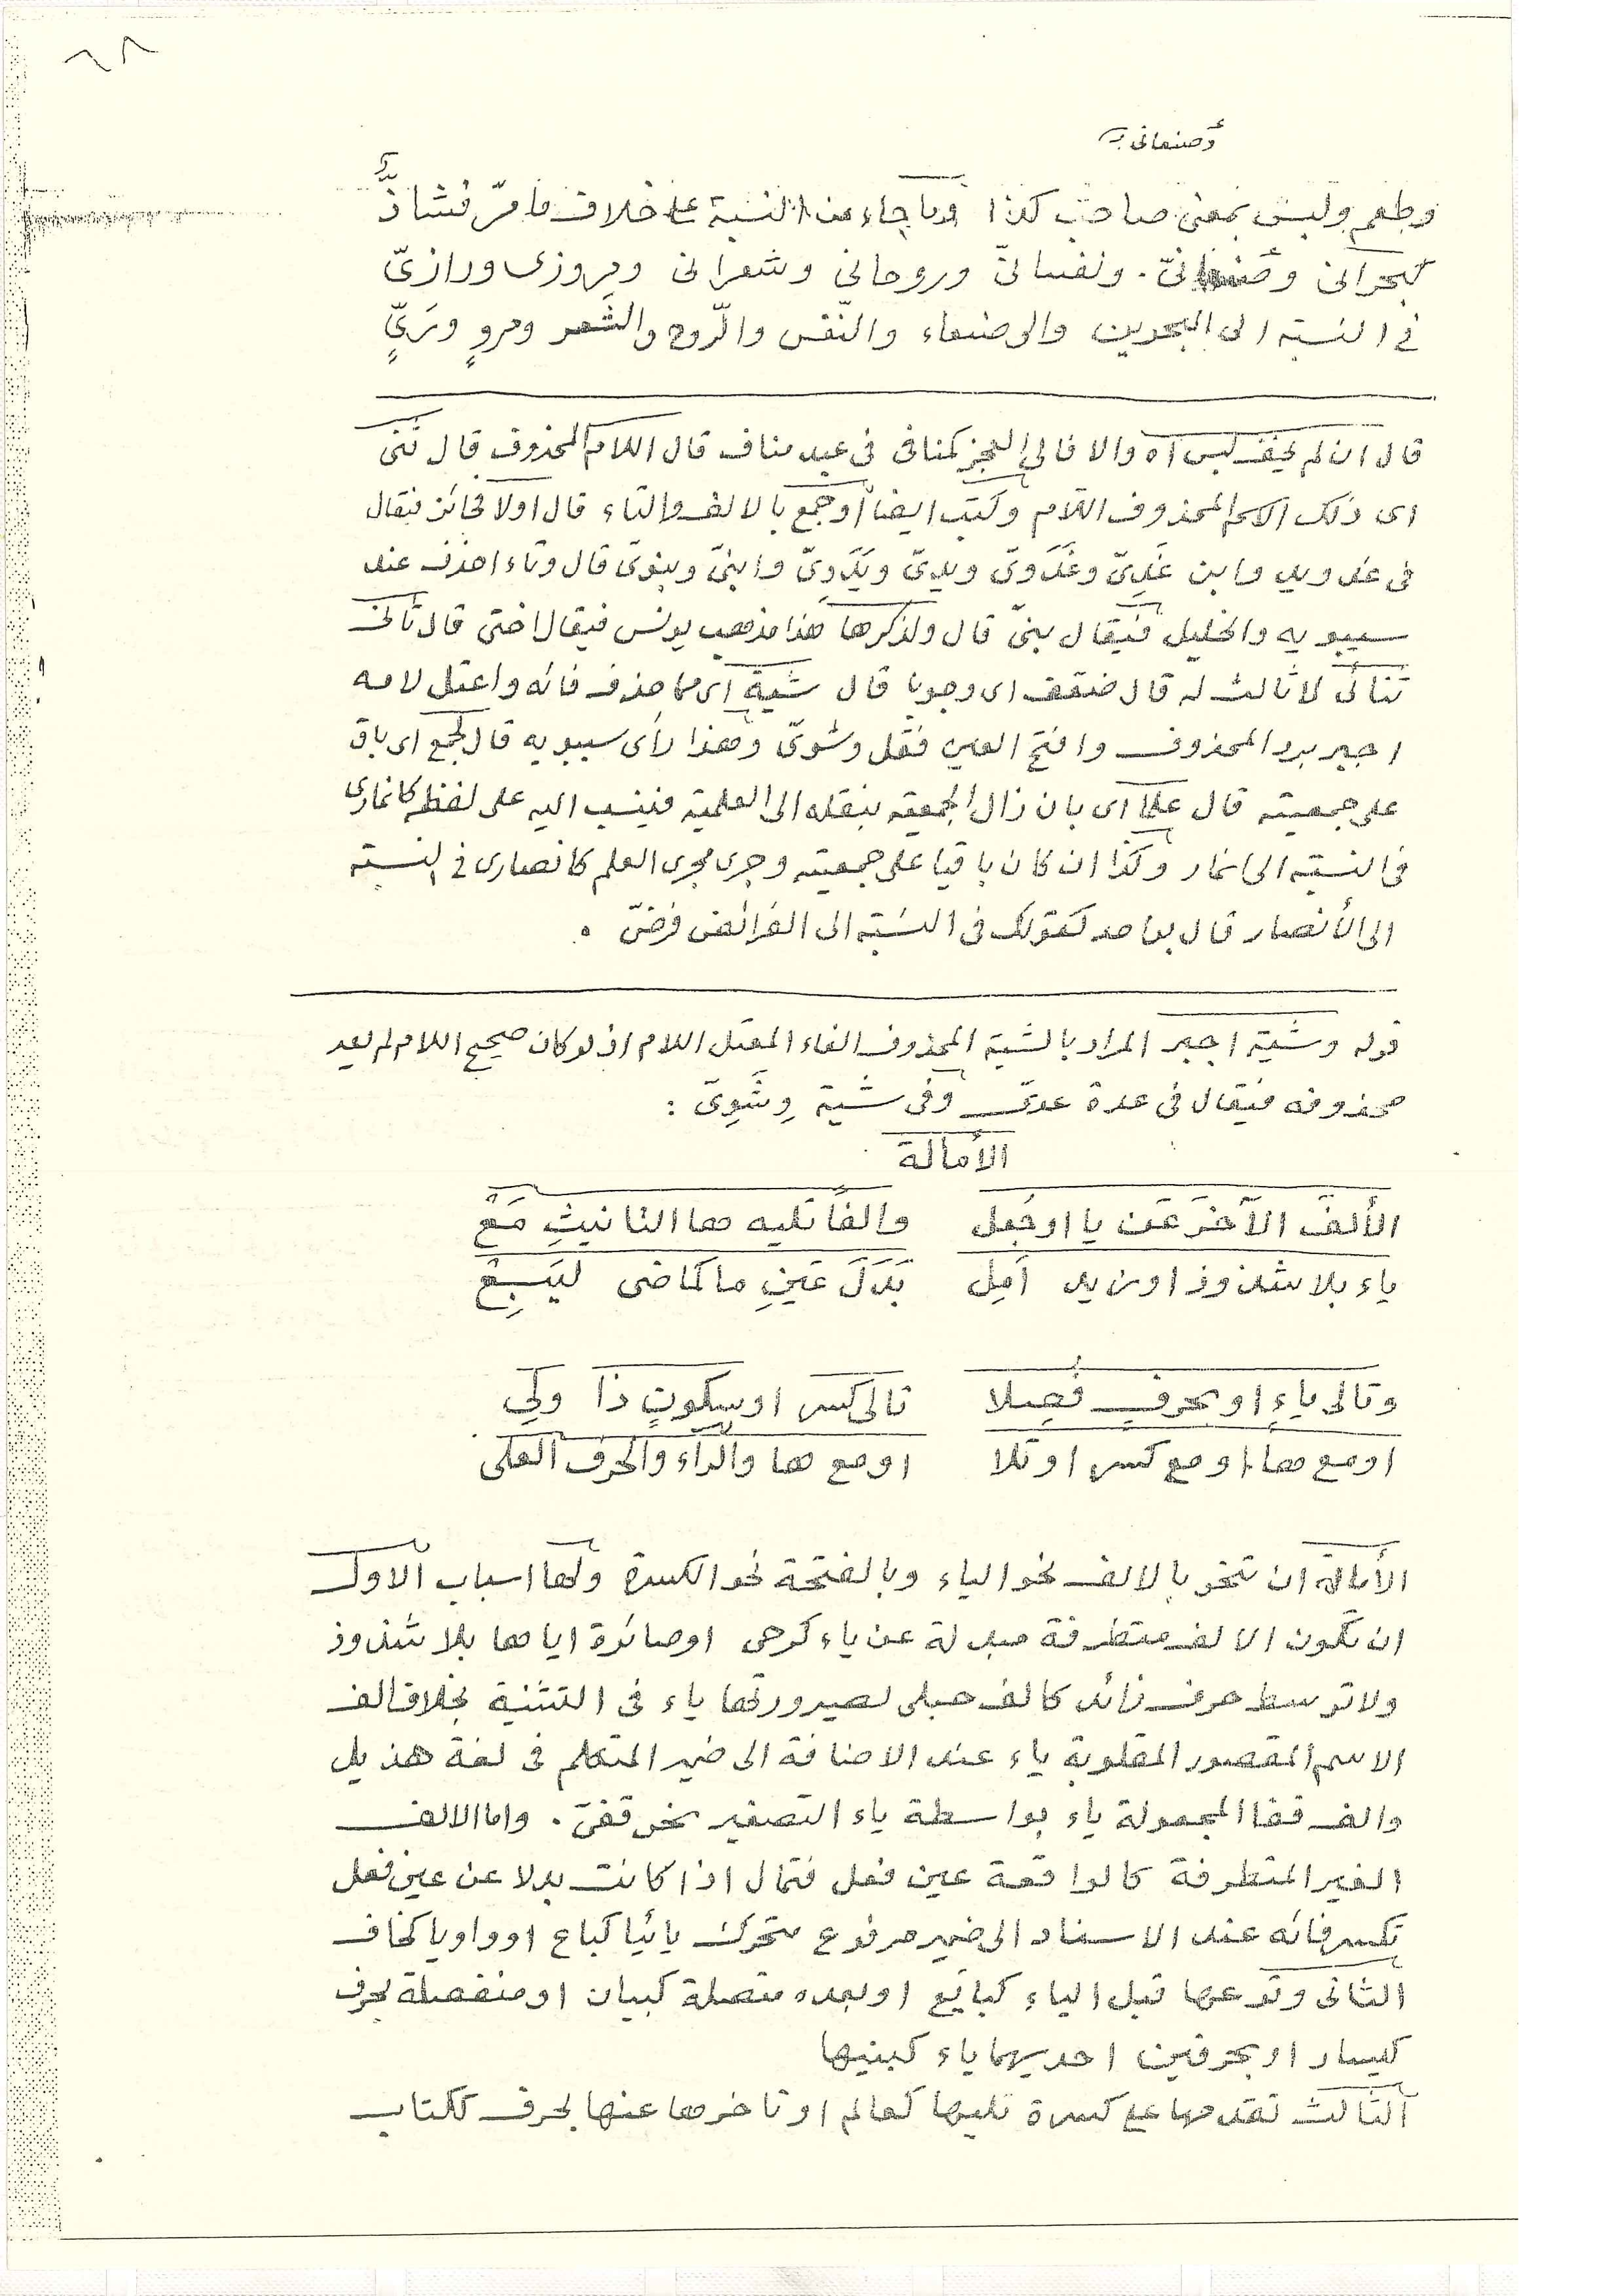 ٦٨
وصنعانى
وطعم وليس بمعنى صاحب كذا وما جاء من النسبة على خلاف ما مرّ فشاذٌّ
كبحرانى وصنعانىّ. ونفسانىّ وروحانى وشعرانى ومروزى ورازىّ
فى النسبة الى البحرين والى صنعاء والنّفس والرّوح والشَّعر ومروٍ ورَىٍّ
قال ان لم يخف لبس اه والا فالى العجز كمنافى فى عبد مناف قال اللام المحذوف قال ثنى
اى ذلك الاسم المحذوف اللام وكتب ايضا أو جمع بالالف والتاء قال اولا فجائز فيقال
فى غد ويد وابن غَدِىّ وغَدَوىّ ويدىّ ويَدَوِىّ وابنىّ وبنوىّ قال وتاء احذف عند
سيبويه والخليل فيقال بنىّ قال ولذكرها هذا مذهب يونس فيقال اختى قال ثانى
ثنائى لا ثالث له قال ضعّف اى وجوبا قال شية اى مما حذف فائه واعتل لامه
اجبر برد المحذوف وافتح العين فقل وشوىّ وهذا رأى سيبويه قال لجمع اى باق
على جمعيته قال علما اى بان زال الجمعية بنقله الى العلمية فينسب اليه على لفظه كانمارى
فى النسبة الى انمار وكذا ان كان باقيا على جمعيته وجرى مجرى العلم كانصارى فى النسبة
الى الأنصار قال بواحد كقولك فى النسبة الى الفرائض فرضىّ .
قوله وشية اجبر المراد بالشية المحذوف الفاء المعتل اللام اذ لو كان صحيح اللام لم يعد
محذوفه فيقال فى عدة عدىّ وفى شية وِشَوِىّ :
الأمالة
الألفَ الآخرَ عَن يا او جُعل والفًا تليه ها التانيثِ مَعْ
ياء بلا شذوذ او مزيد اَمِل بَدَلَ عَينِ ما كماضى ليَبِعْ
وتالى ياءٍ او بحرفٍ فُصِلا تالى كسر او سكونٍ ذا ولِي
او مع ها او مع كسر او تلا او مع ها والرّاء والحرف العلى
الأمالة ان تنحو بالالف نحو الياء وبالفتحة نحو الكسرة ولها اسباب الاول
ان تكون الالف متطرفة مبدلة عن ياء كرحى او صائرة اياها بلا شذوذ
ولا توسط حرف زائد كالف حبلى لصيرورتها ياء فى التثنية بخلاف الف
الاسم المقصور المقلوبة ياء عند الاضافة الى ضمير المتكلم فى لغة هذيل
والف قفا المجعولة ياء بواسطة ياء التصغير نحو قفىّ . واما الالف
الغير المتطرفة كالواقعة عين فعل فتمال اذا كانت بدلا عن عين فعل
تكسر فائه عند الاسناد الى ضمير مرفوع متحرك يائيا كباع او واويا كخاف
الثانى وقوعها قبل الياء كبايع او بعده متصلة كبيان او منفصلة بحرف
كيسار او بحرفين احديهما ياء كبنيها
الثالث تقدمها على كسرة تليها كعالم او تاخرها عنها بحرف ككتاب